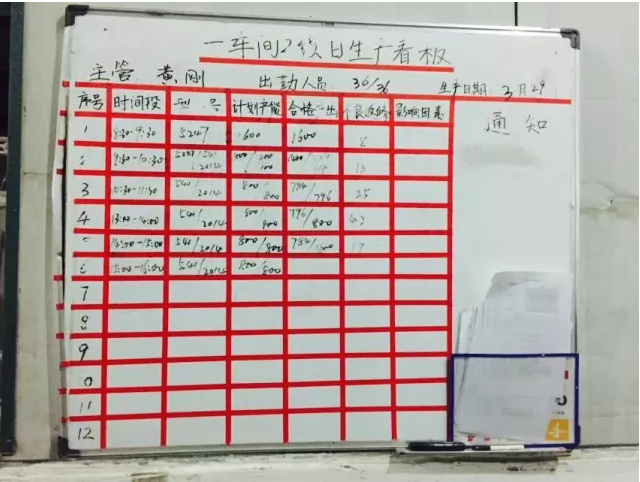 一车间2线日生产看板
主管 黄刚 出勤人员 36/36 生产日期 3月29
序号 时间段 型号 计划产能 合格产出 不良次数 影响因素 通知
1 8:30-9:30 5247 1600 1600 8
2 9:30-10:30
3 10:30-11:30 541/2014 800/800 784/796 25
4 13:00-14:00 541/2014 800/800 796/800 43
5 14:00-15:00 541/2014 800/800 784/800 17
6 15:00-16:00 541/2014 800/800
7
8
9
10
11
12